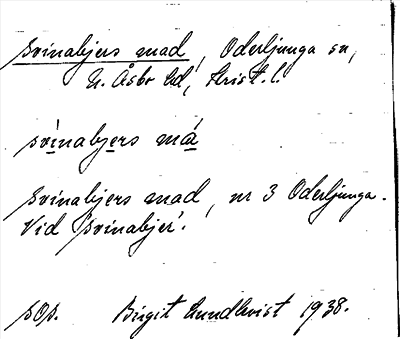 Svinabjers mad, Oderljunga sn,
N. Åsbo hd, Krist. l.
svinabjers má
Svinabjers mad, nr 3 Oderljunga.
Vid 'Svinabjer'.
sOp. Birgit Lundkvist 1938.